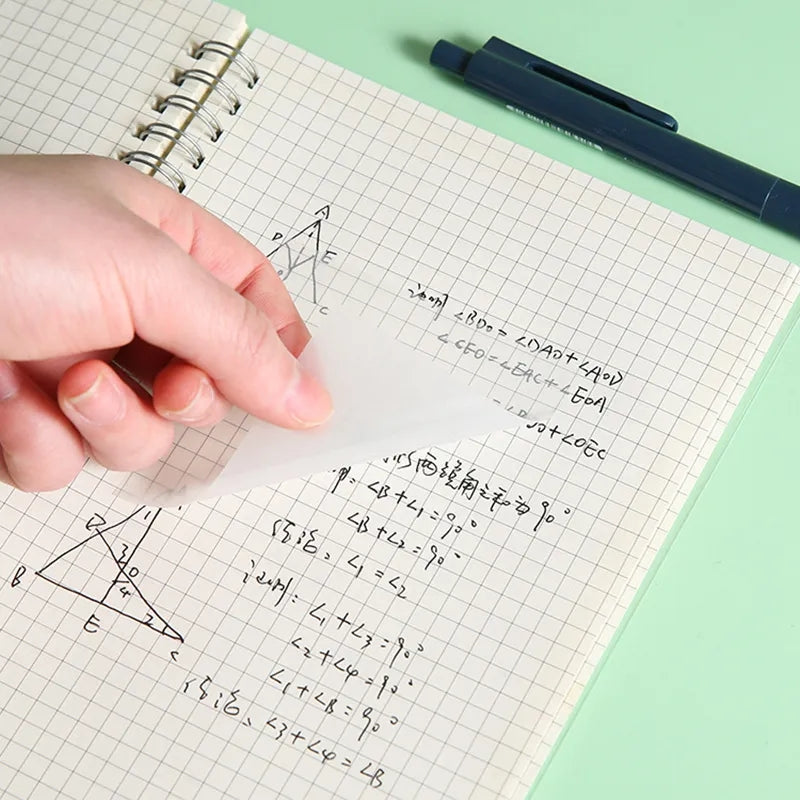 A
D
E
C
证明 ∠BDO=∠DAO+∠AOD
∠CEO=∠EAC+∠EOA
DO+∠OEC
两锐角之和为90°
∠B+∠1=90°
∠B+∠2=90°
结论: ∠1=∠2
证明: ∠1+∠3=90°
∠2+∠4=90°
∠1+∠B=90°
结论: ∠3+∠4=∠B
D
1
3
O
B
4
E
2
C